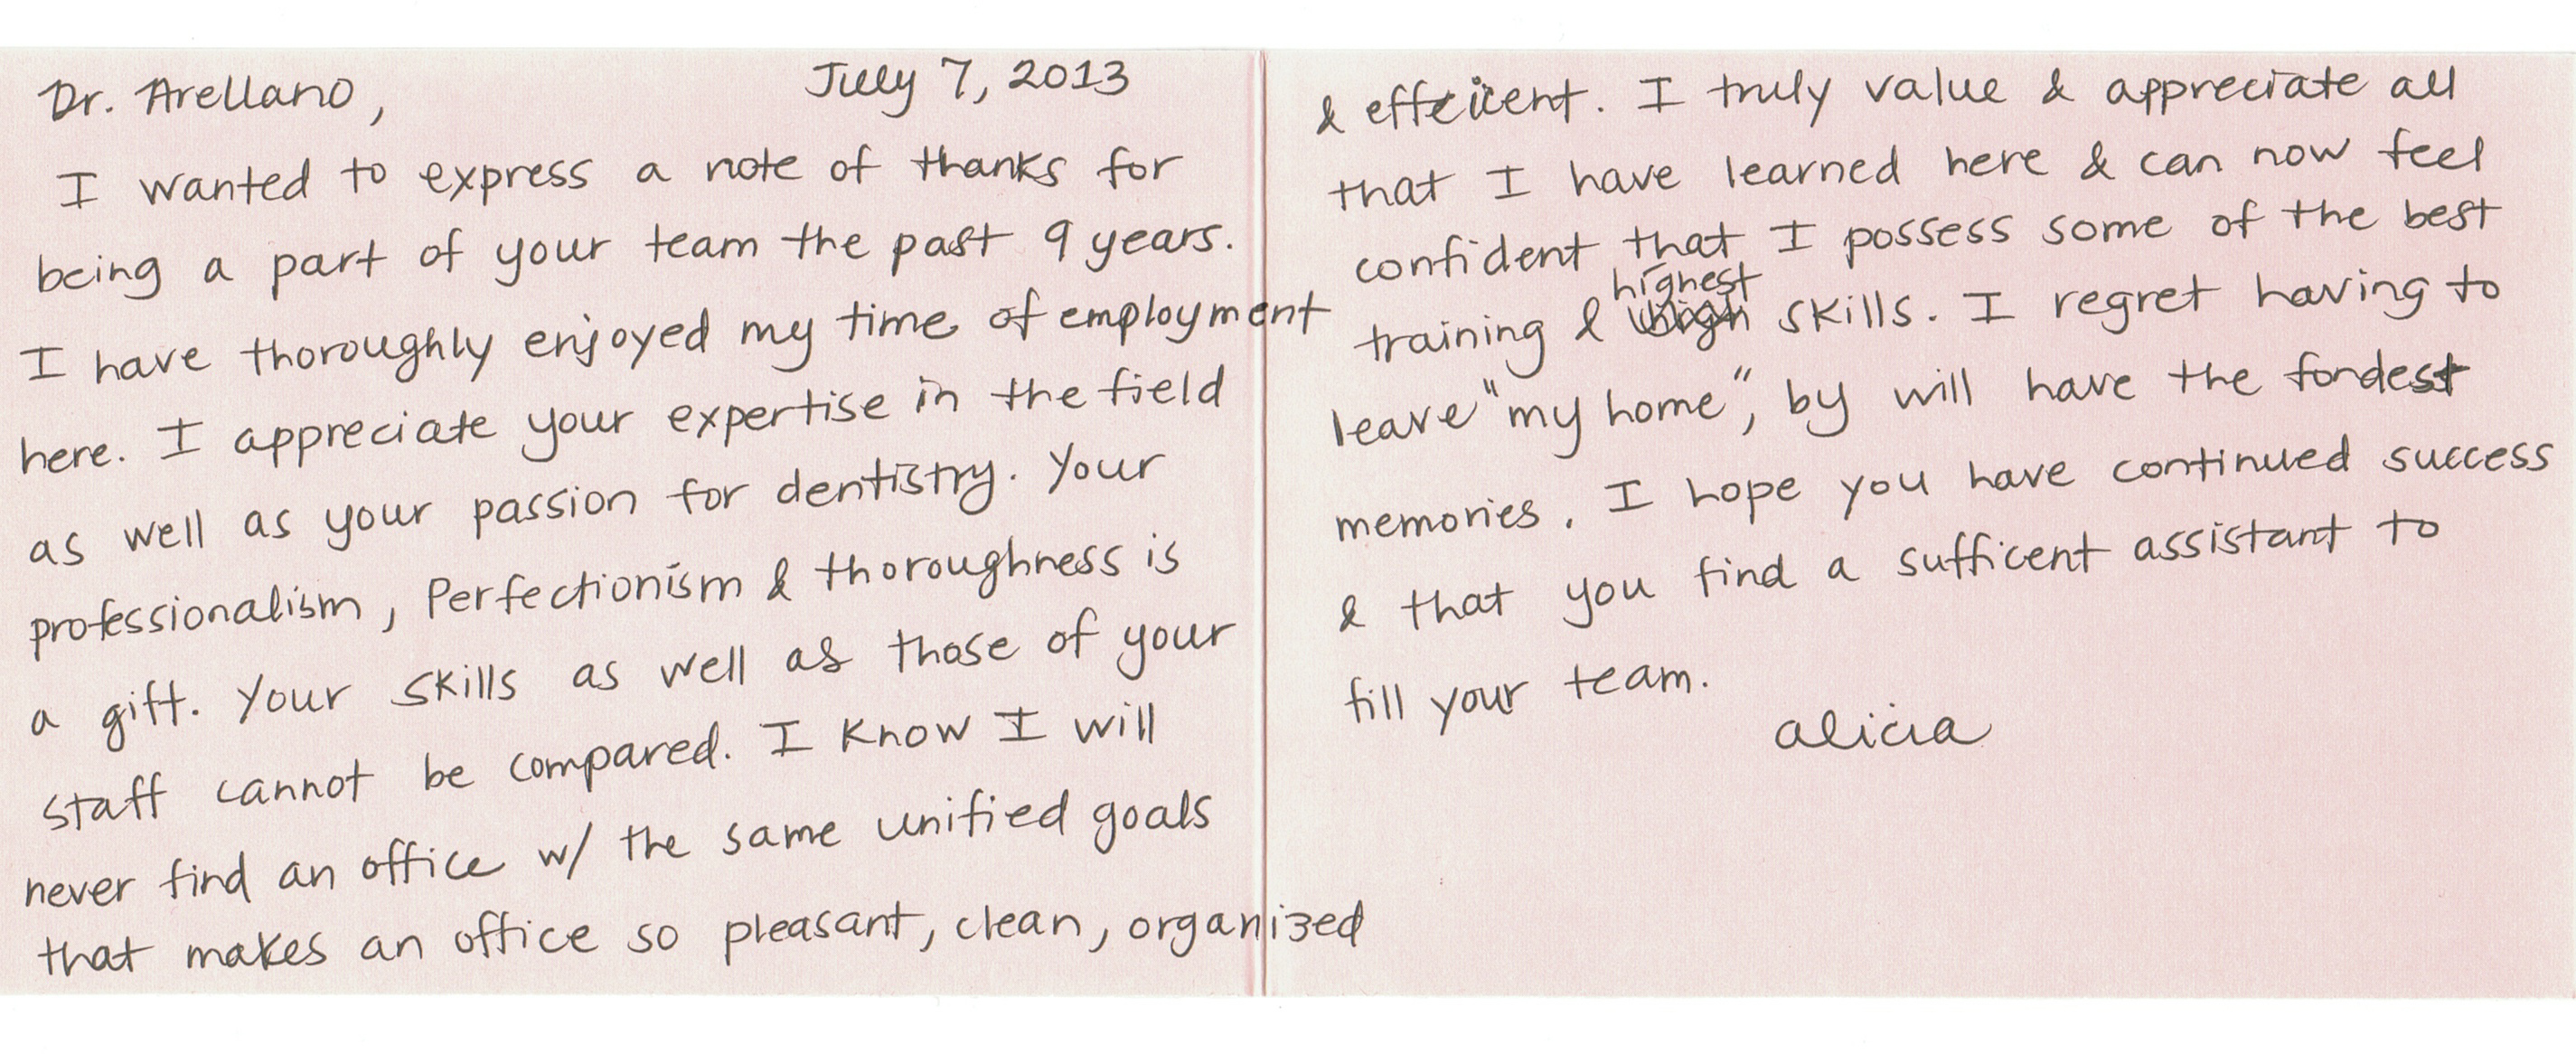 Dr. Arellano, July 7, 2013
I wanted to express a note of thanks for
being a part of your team the past 9 years.
I have thoroughly enjoyed my time of employment
here. I appreciate your expertise in the field
as well as your passion for dentistry. Your
professionalism, Perfectionism & thoroughness is
a gift. Your skills as well as those of your
staff cannot be compared. I know I will
never find an office w/ the same unified goals
that makes an office so pleasant, clean, organized
& efficent. I truly value & appreciate all
that I have learned here & can now feel
confident that I possess some of the best
training & highest skills. I regret having to
leave "my home", by will have the fondest
memories. I hope you have continued success
& that you find a sufficent assistant to
fill your team.
alicia